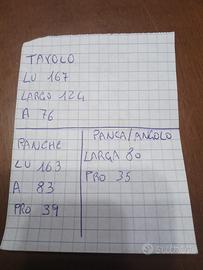 TAVOLO
LU 167
LARGO 124
A 76
PANCHE
LU 163
A 83
PRO 39
PANCA/ANGOLO
LARGA 80
PRO 35